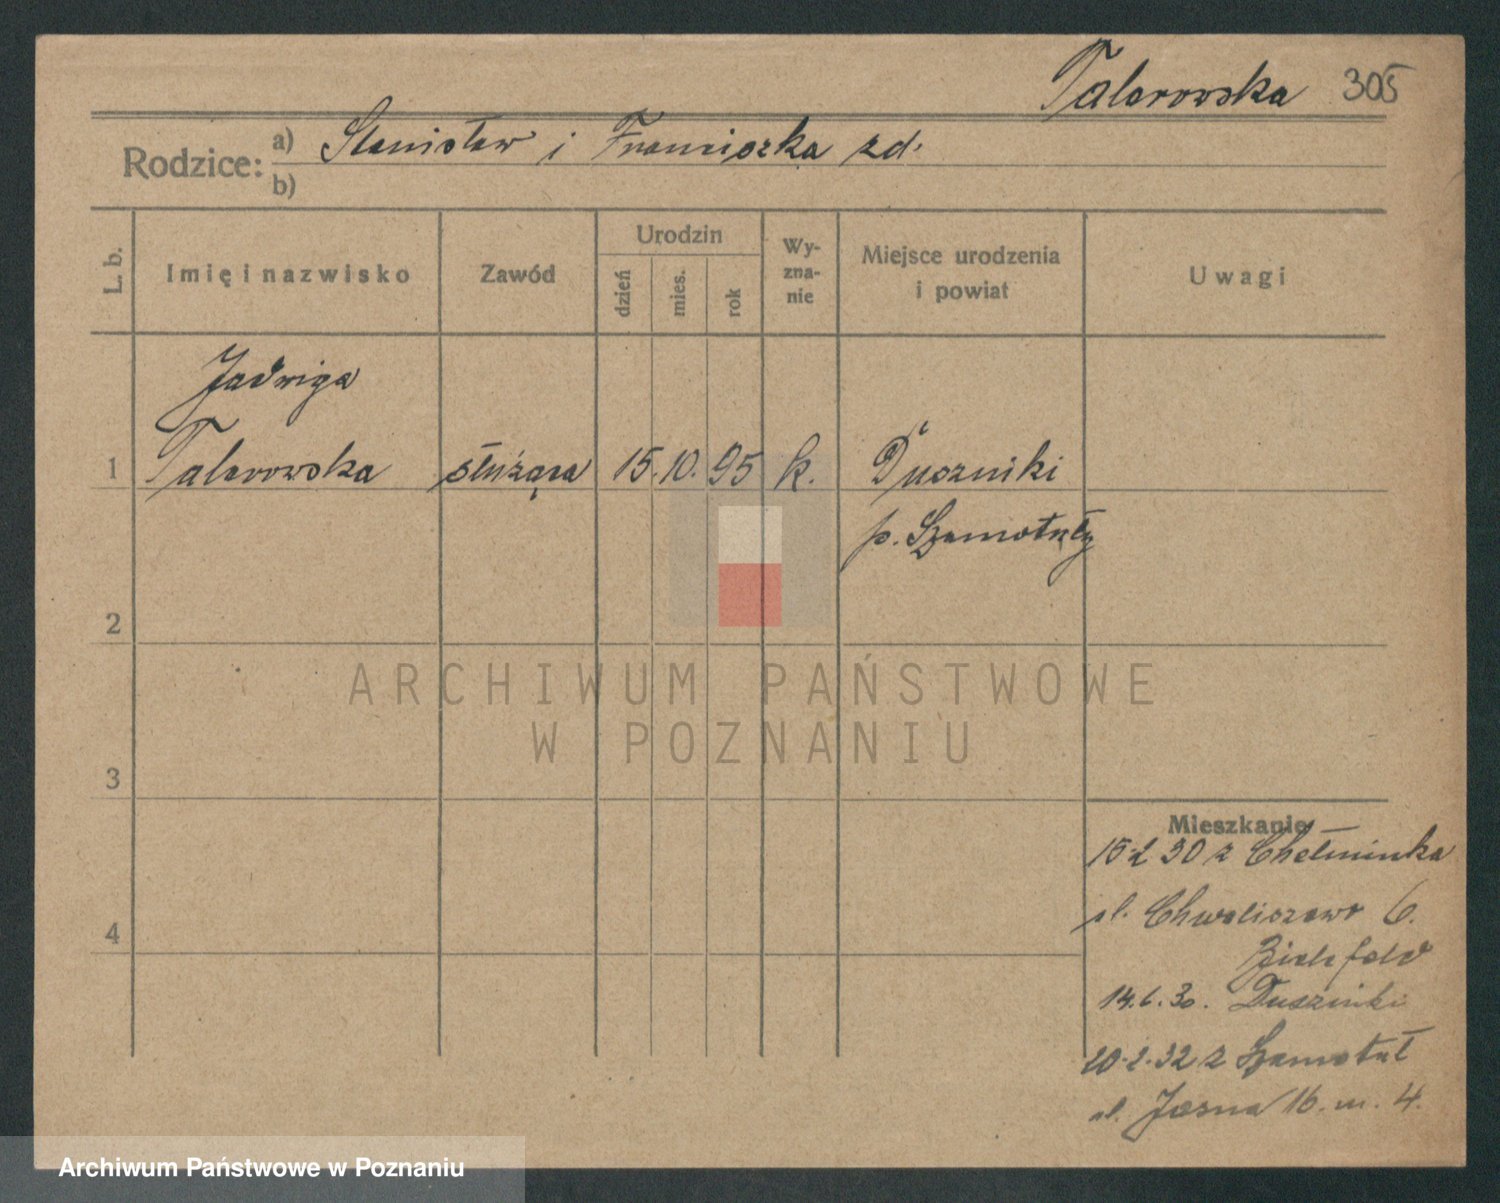 Talarowska 305
Rodzice: a) Stanisław i Franciszka zd.
b)
L. b.
Imię i nazwisko
Zawód
Urodzin
dzień
mies.
rok
Wy-
zna-
nie
Miejsce urodzenia
i powiat
Uwagi
Jadwiga
1 Talarowska służąca 15. 10. 95 k. Duszniki
p. Szamotuły
2
3
4
Mieszkanie
15 2 30 z Chełminka
ul. Chwaliszewo 6.
Bielefeld
14.6.30. Duszniki
20.2.32 z Szamotuł
ul. Jasna 16. m. 4.
ARCHIWUM PAŃSTWOWE
W POZNANIU
Archiwum Państwowe w Poznaniu